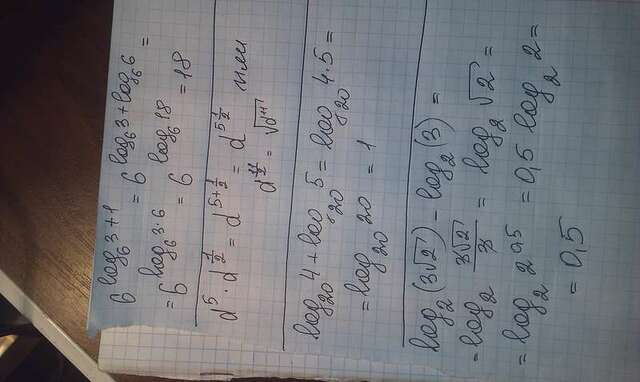 6^{log_6 3+1} = 6^{log_6 3+log_6 6} =
= 6^{log_6 3·6} = 6^{log_6 18} = 18
d^5 · d^{\frac{1}{2}} = d^{5+\frac{1}{2}} = d^{5\frac{1}{2}} или
d^{\frac{11}{2}} = √d^{11}
log_{20} 4 + log_{20} 5 = log_{20} 4·5 =
= log_{20} 20 = 1
log_2 (3√2) - log_2 (3) =
= log_2 \frac{3√2}{3} = log_2 √2 =
= log_2 2^{0,5} = 0,5 log_2 2 =
= 0,5